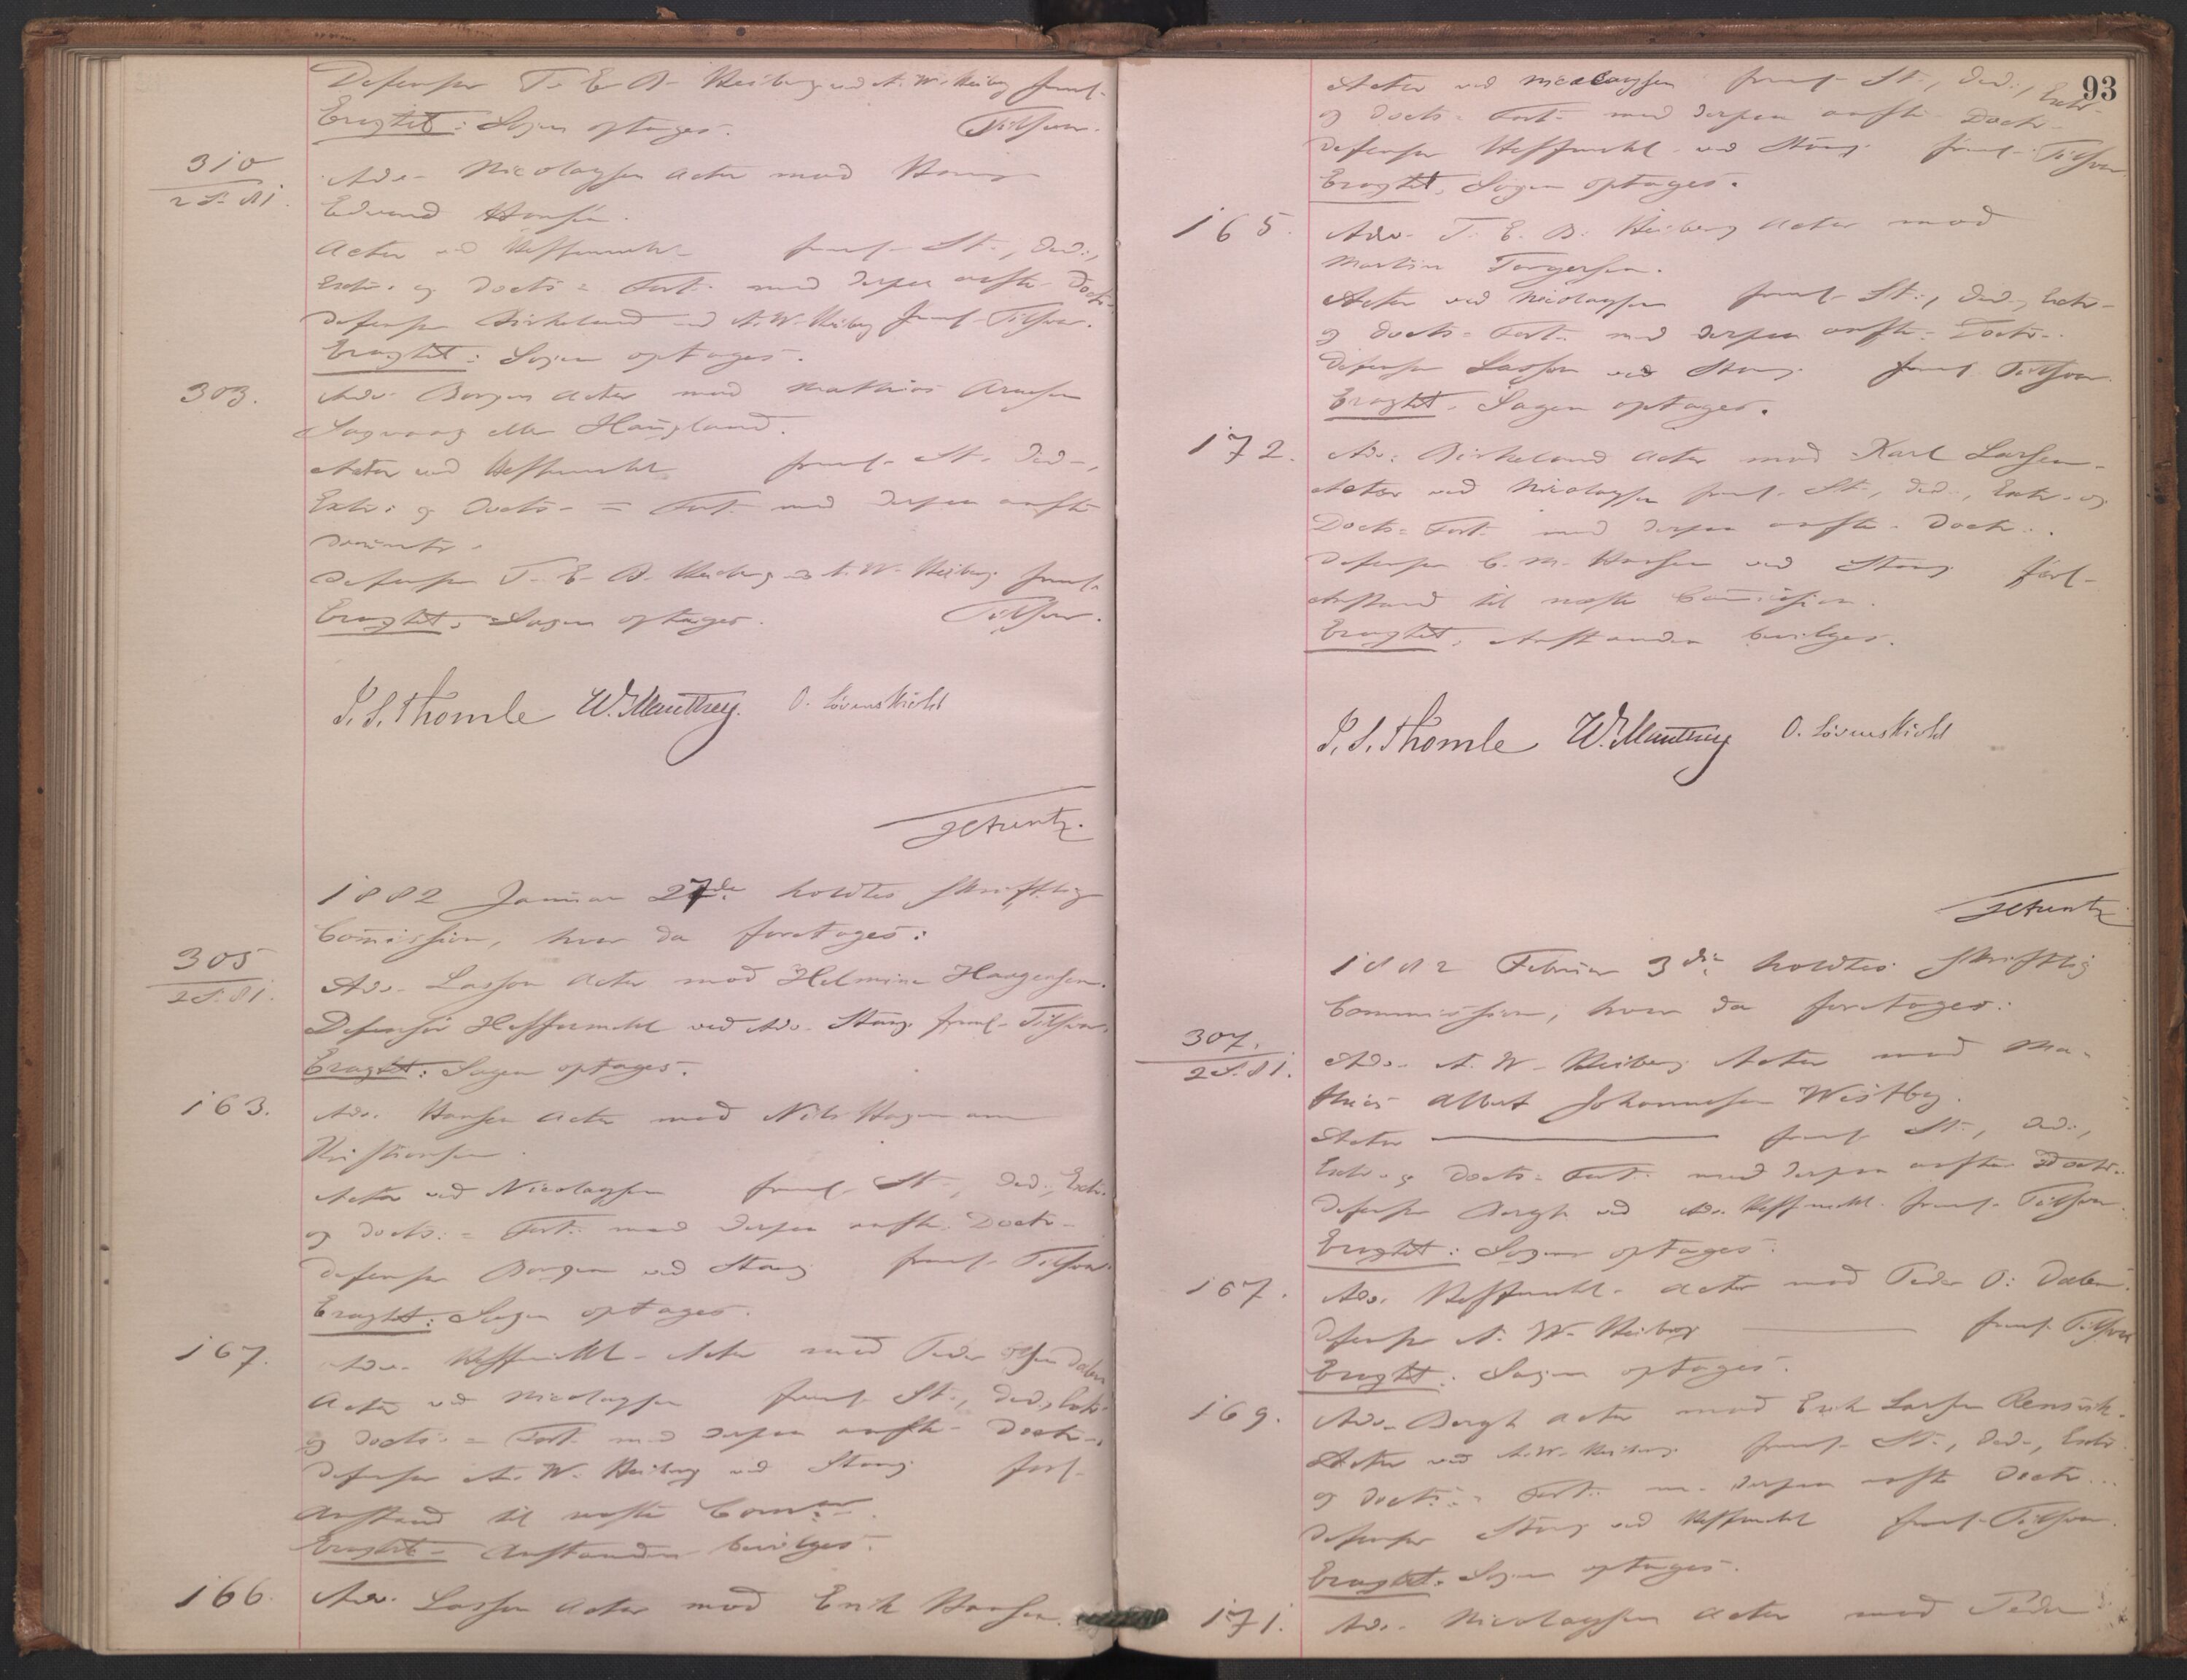 Defensor T. E. B. Heiberg ved A. W. Heiberg freml.
Eragtet: Sagen optages. Tilsvar.
310
2 S. 81.
Adv. Nicolaysen Actor mod Hans
Edvard Hansen.
Actor ved Heffermehl freml. St., Ded.,
Extr. og Docts. = Fort. med derpaa anfte. Doctr.
Defensor Birkeland ved A. W. Heiberg freml. Tilsvar.
Eragtet: Sagen optages.
303.
Adv. Borgen Actor mod Mathias Arnesen
Sagvaag eller Haugland.
Actor ved Heffermehl freml. St. Ded.,
Extr. og Docts. = Fort. med derpaa anfte
Defensor T. E. B. Heiberg ved A. W. Heiberg freml.
Eragtet: Sagen optages. Tilsvar.
J. S. Thomle W. Manthey. O. Løvenskiold
1882 Januar 27de holdtes skriftlig
Commission, hvor da foretages:
305
2 S. 81.
Adv. Lasson Actor mod Helmine Haagensen.
Defensor Heffermehl ved Adv. Stang freml. Tilsvar.
Eragtet: Sagen optages.
163.
Adv. Hansen Actor mod Nils Hagemann
Kristiansen.
Actor ved Nicolaysen freml. St., Ded., Extr.
og Docts. = Fort. med derpaa anfte. Doctr.
Defensor Borgen ved Stang freml. Tilsvar.
Eragtet: Sagen optages.
167.
Adv. Heffermehl Actor mod Peder Olsen Dalen
Actor ved Nicolaysen freml. St., Ded., Extr.
og Docts. = Fort. med derpaa anfte. Doctr.
Defensor A. W. Heiberg ved Stang forl.
Anstand til næste Comm.
Eragtet. Anstanden bevilges.
166.
Adv. Lasson Actor mod Erik Hansen.
93
Actor ved Nicolaysen freml. St., Ded., Extr.
og Docts. = Fort. med derpaa anfte. Doctr.
Defensor Heffermehl ved Stang freml. Tilsvar
Eragtet. Sagen optages.
165.
Adv. T. E. B. Heiberg Actor mod
Martin Torgersen.
Actor ved Nicolaysen freml. St., Ded., Extr.
og Docts. = Fort. med derpaa anfte. Doctr.
Defensor Lasson ved Stang freml. Tilsvar.
Eragtet. Sagen optages.
172.
Adv. Birkeland Actor mod Karl Larsen.
Actor ved Nicolaysen freml. St., Ded., Extr. og
Docts. = Fort. med derpaa anfte. Doctr.
Defensor C. M. Hansen ved Stang forl.
Anstand til næste Commission.
Eragtet. Anstanden bevilges.
J. S. Thomle W. Manthey O. Løvenskiold
1882 Februar 3die holdtes skriftlig
Commission, hvor da foretages:
307.
2 S. 81.
Adv. A. W. Heiberg Actor mod Ma-
thias Albert Johannesen Westby.
Actor freml. St., Ded.,
Extr. og Docts. = Fort. med derpaa anfte. Doctr.
Defensor Bergh ved Adv. Heffermehl freml. Tilsvar.
Eragtet: Sagen optages.
167.
Adv. Heffermehl Actor mod Peder O. Dalen.
Defensor A. W. Heiberg freml. Tilsvar
Eragtet: Sagen optages.
169.
Adv. Bergh Actor mod Erik Larsen
Actor ved A. W. Heiberg freml. St., Ded., Extr.
og Docts. = Fort. m. derpaa anfte Doctr.
Defensor Stang ved Heffermehl freml. Tilsvar.
Eragtet. Sagen optages.
171.
Adv. Nicolaysen Actor mod Peder